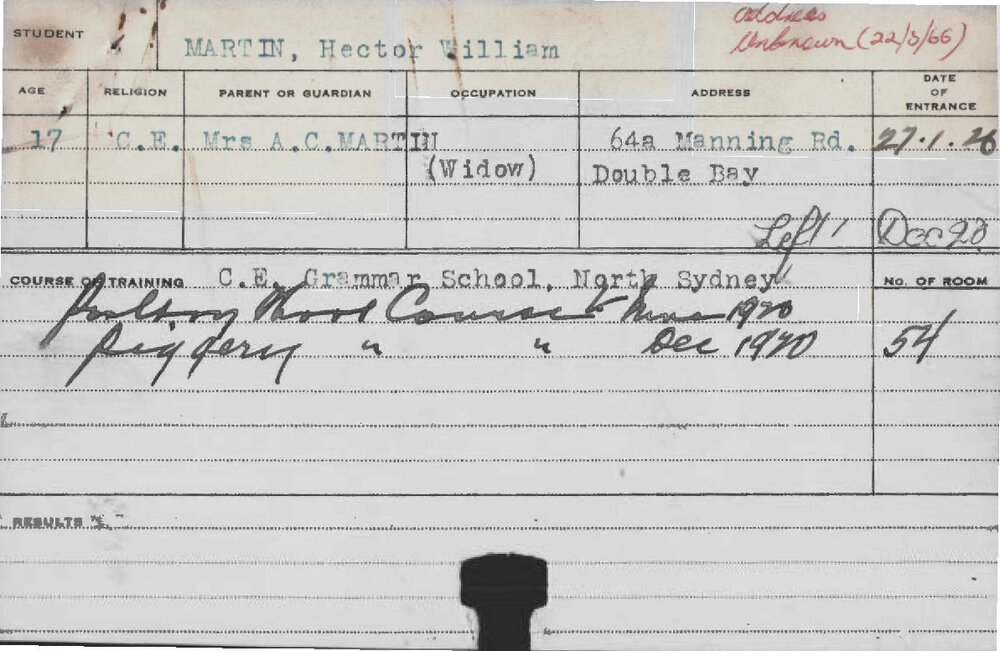 STUDENT
MARTIN, Hector William
Address
Unknown (22/3/66)
AGE RELIGION PARENT OR GUARDIAN OCCUPATION ADDRESS DATE OF ENTRANCE
17 C.E. Mrs A.C.MARTIN 64a Manning Rd. 27.1.20
(Widow) Double Bay
Left Dec 20
COURSE OF TRAINING C.E. Grammar School, North Sydney No. OF ROOM
Poultry Short Course June 1920
Piggery " " Dec 1920 54
RESULTS